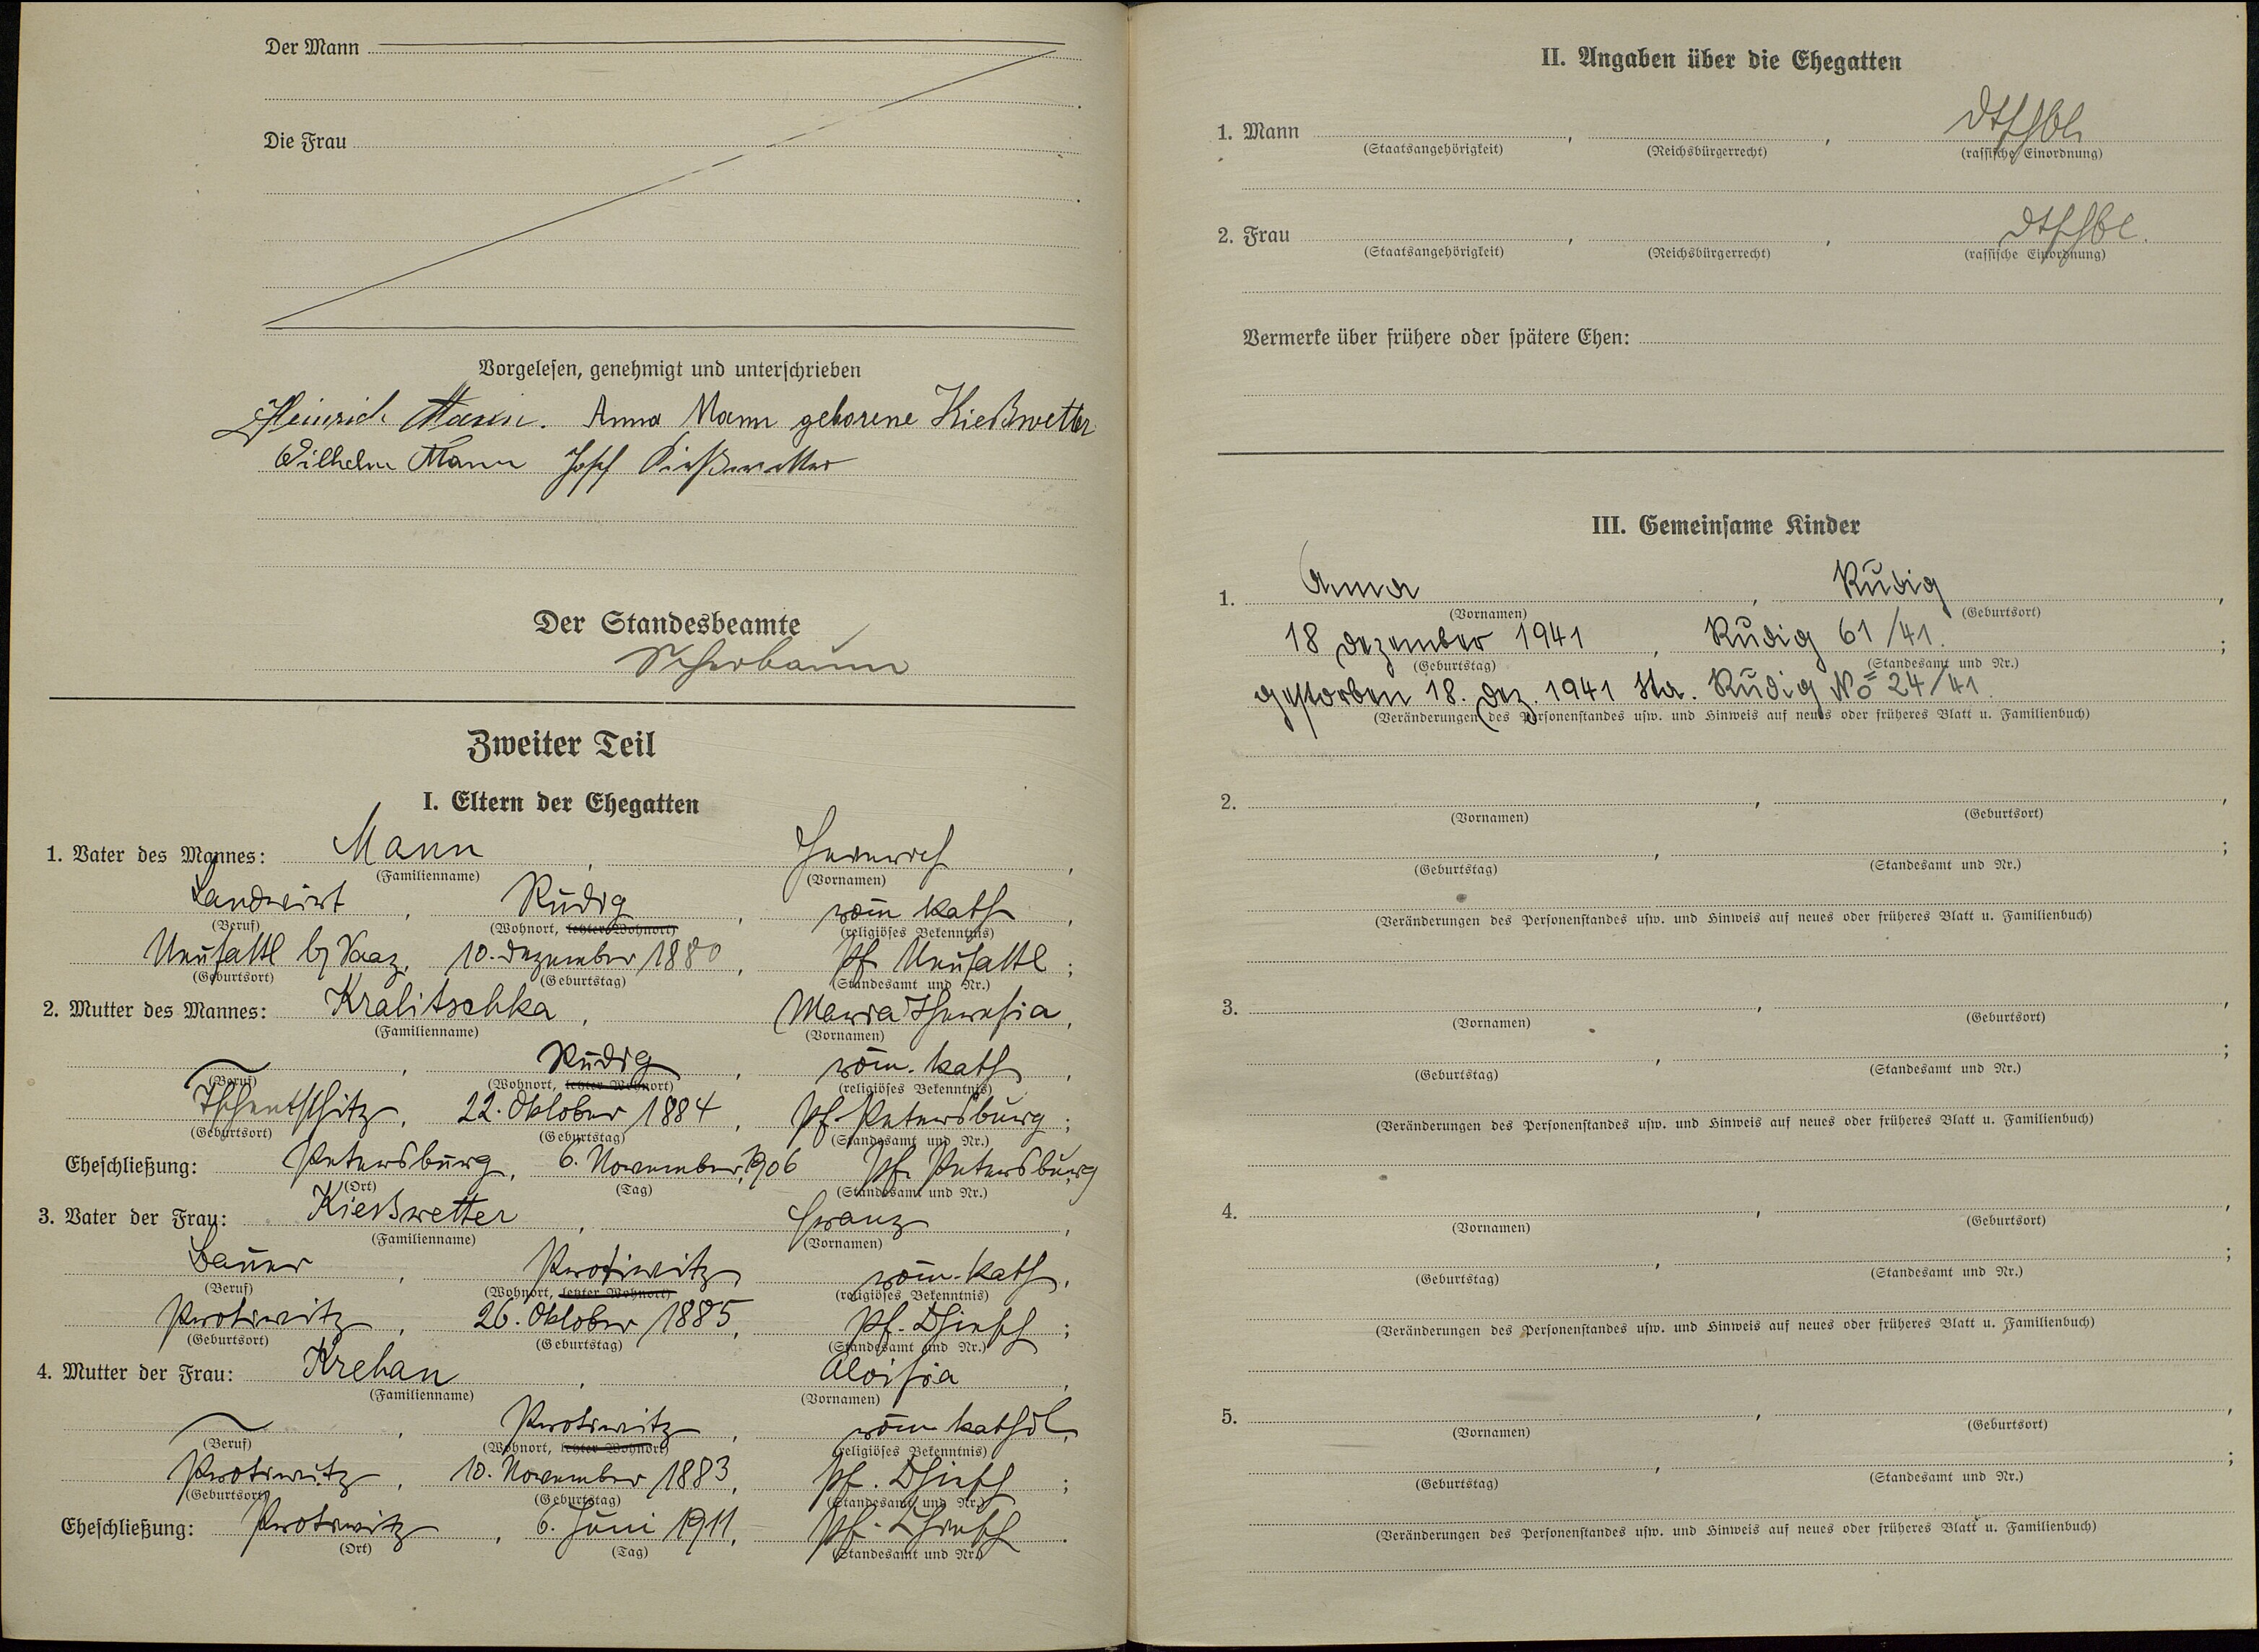 Der Mann
Die Frau
Vorgelesen, genehmigt und unterschrieben
Heinrich Mann. Anna Mann geborene Kießwetter
Wilhelm Mann Josef Kießwetter
Der Standesbeamte
Scherbaum
Zweiter Teil
I. Eltern der Ehegatten
1. Vater des Mannes: Mann, Heinrich,
(Familienname) (Vornamen)
Landwirt, Rudig, röm kath,
(Beruf) (Wohnort, letzter Wohnort) (religiöses Bekenntnis)
Neusattl b/ Saaz, 10. Dezember 1880, Pf. Neusattl;
(Geburtsort) (Geburtstag) (Standesamt und Nr.)
2. Mutter des Mannes: Kralitschka, Maria Theresia,
(Familienname) (Vornamen)
Rudig, röm. kath,
(Beruf) (Wohnort, letzter Wohnort) (religiöses Bekenntnis)
Tschentschitz, 22. Oktober 1884, Pf. Petersburg;
(Geburtsort) (Geburtstag) (Standesamt und Nr.)
Eheschließung: Petersburg, 6. November, 1906 Pf. Petersburg
(Ort) (Tag) (Standesamt und Nr.)
3. Vater der Frau: Kießwetter, Franz,
(Familienname) (Vornamen)
Bauer, Protiwitz, röm. kath,
(Beruf) (Wohnort, letzter Wohnort) (religiöses Bekenntnis)
Protiwitz, 26. Oktober 1885, Pf.
(Geburtsort) (Geburtstag) (Standesamt und Nr.)
4. Mutter der Frau: Krehan, Aloisia,
(Familienname) (Vornamen)
Protiwitz, röm kathol,
(Beruf) (Wohnort, letzter Wohnort) (religiöses Bekenntnis)
Protiwitz, 10. November 1883, Pf.
(Geburtsort) (Geburtstag) (Standesamt und Nr.)
Eheschließung: Protiwitz, 6. Juni 1911, Pf.
(Ort) (Tag) (Standesamt und Nr.)
II. Angaben über die Ehegatten
1. Mann, , dtschbl.
(Staatsangehörigkeit) (Reichsbürgerrecht) (rassische Einordnung)
2. Frau, , dtschbl.
(Staatsangehörigkeit) (Reichsbürgerrecht) (rassische Einordnung)
Vermerke über frühere oder spätere Ehen:
III. Gemeinsame Kinder
1. Anna, Rudig,
(Vornamen) (Geburtsort)
18 Dezember 1941, Rudig 61/41.;
(Geburtstag) (Standesamt und Nr.)
gestorben 18. Dez. 1941 Sta. Rudig No 24/41.
(Veränderungen des Personenstandes usw. und Hinweis auf neues oder früheres Blatt u. Familienbuch)
2. , ,
(Vornamen) (Geburtsort)
, ;
(Geburtstag) (Standesamt und Nr.)
(Veränderungen des Personenstandes usw. und Hinweis auf neues oder früheres Blatt u. Familienbuch)
3. , ,
(Vornamen) (Geburtsort)
, ;
(Geburtstag) (Standesamt und Nr.)
(Veränderungen des Personenstandes usw. und Hinweis auf neues oder früheres Blatt u. Familienbuch)
4. , ,
(Vornamen) (Geburtsort)
, ;
(Geburtstag) (Standesamt und Nr.)
(Veränderungen des Personenstandes usw. und Hinweis auf neues oder früheres Blatt u. Familienbuch)
5. , ,
(Vornamen) (Geburtsort)
, ;
(Geburtstag) (Standesamt und Nr.)
(Veränderungen des Personenstandes usw. und Hinweis auf neues oder früheres Blatt u. Familienbuch)